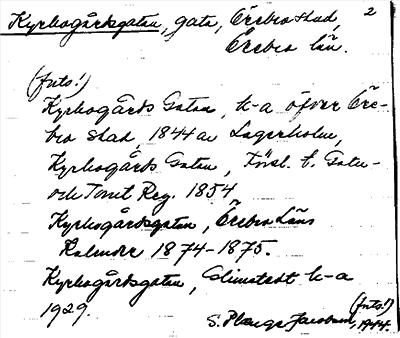 Kyrkogårdsgatan, gata, Örebro stad, 2
Örebro län.
(forts!)
Kyrkogårds Gatan, k-a öfver Öre-
bro stad, 1844 av Lagerholm,
Kyrkogårds Gatan, Försl. t. Gatu-
och Tomt Reg. 1854
Kyrkogårdsgatan, Örebro Läns
Kalender 1874-1875.
Kyrkogårdsgatan, Elmstedt k-a
1929. (forts!)
S. Plange Jacobson, 1944.